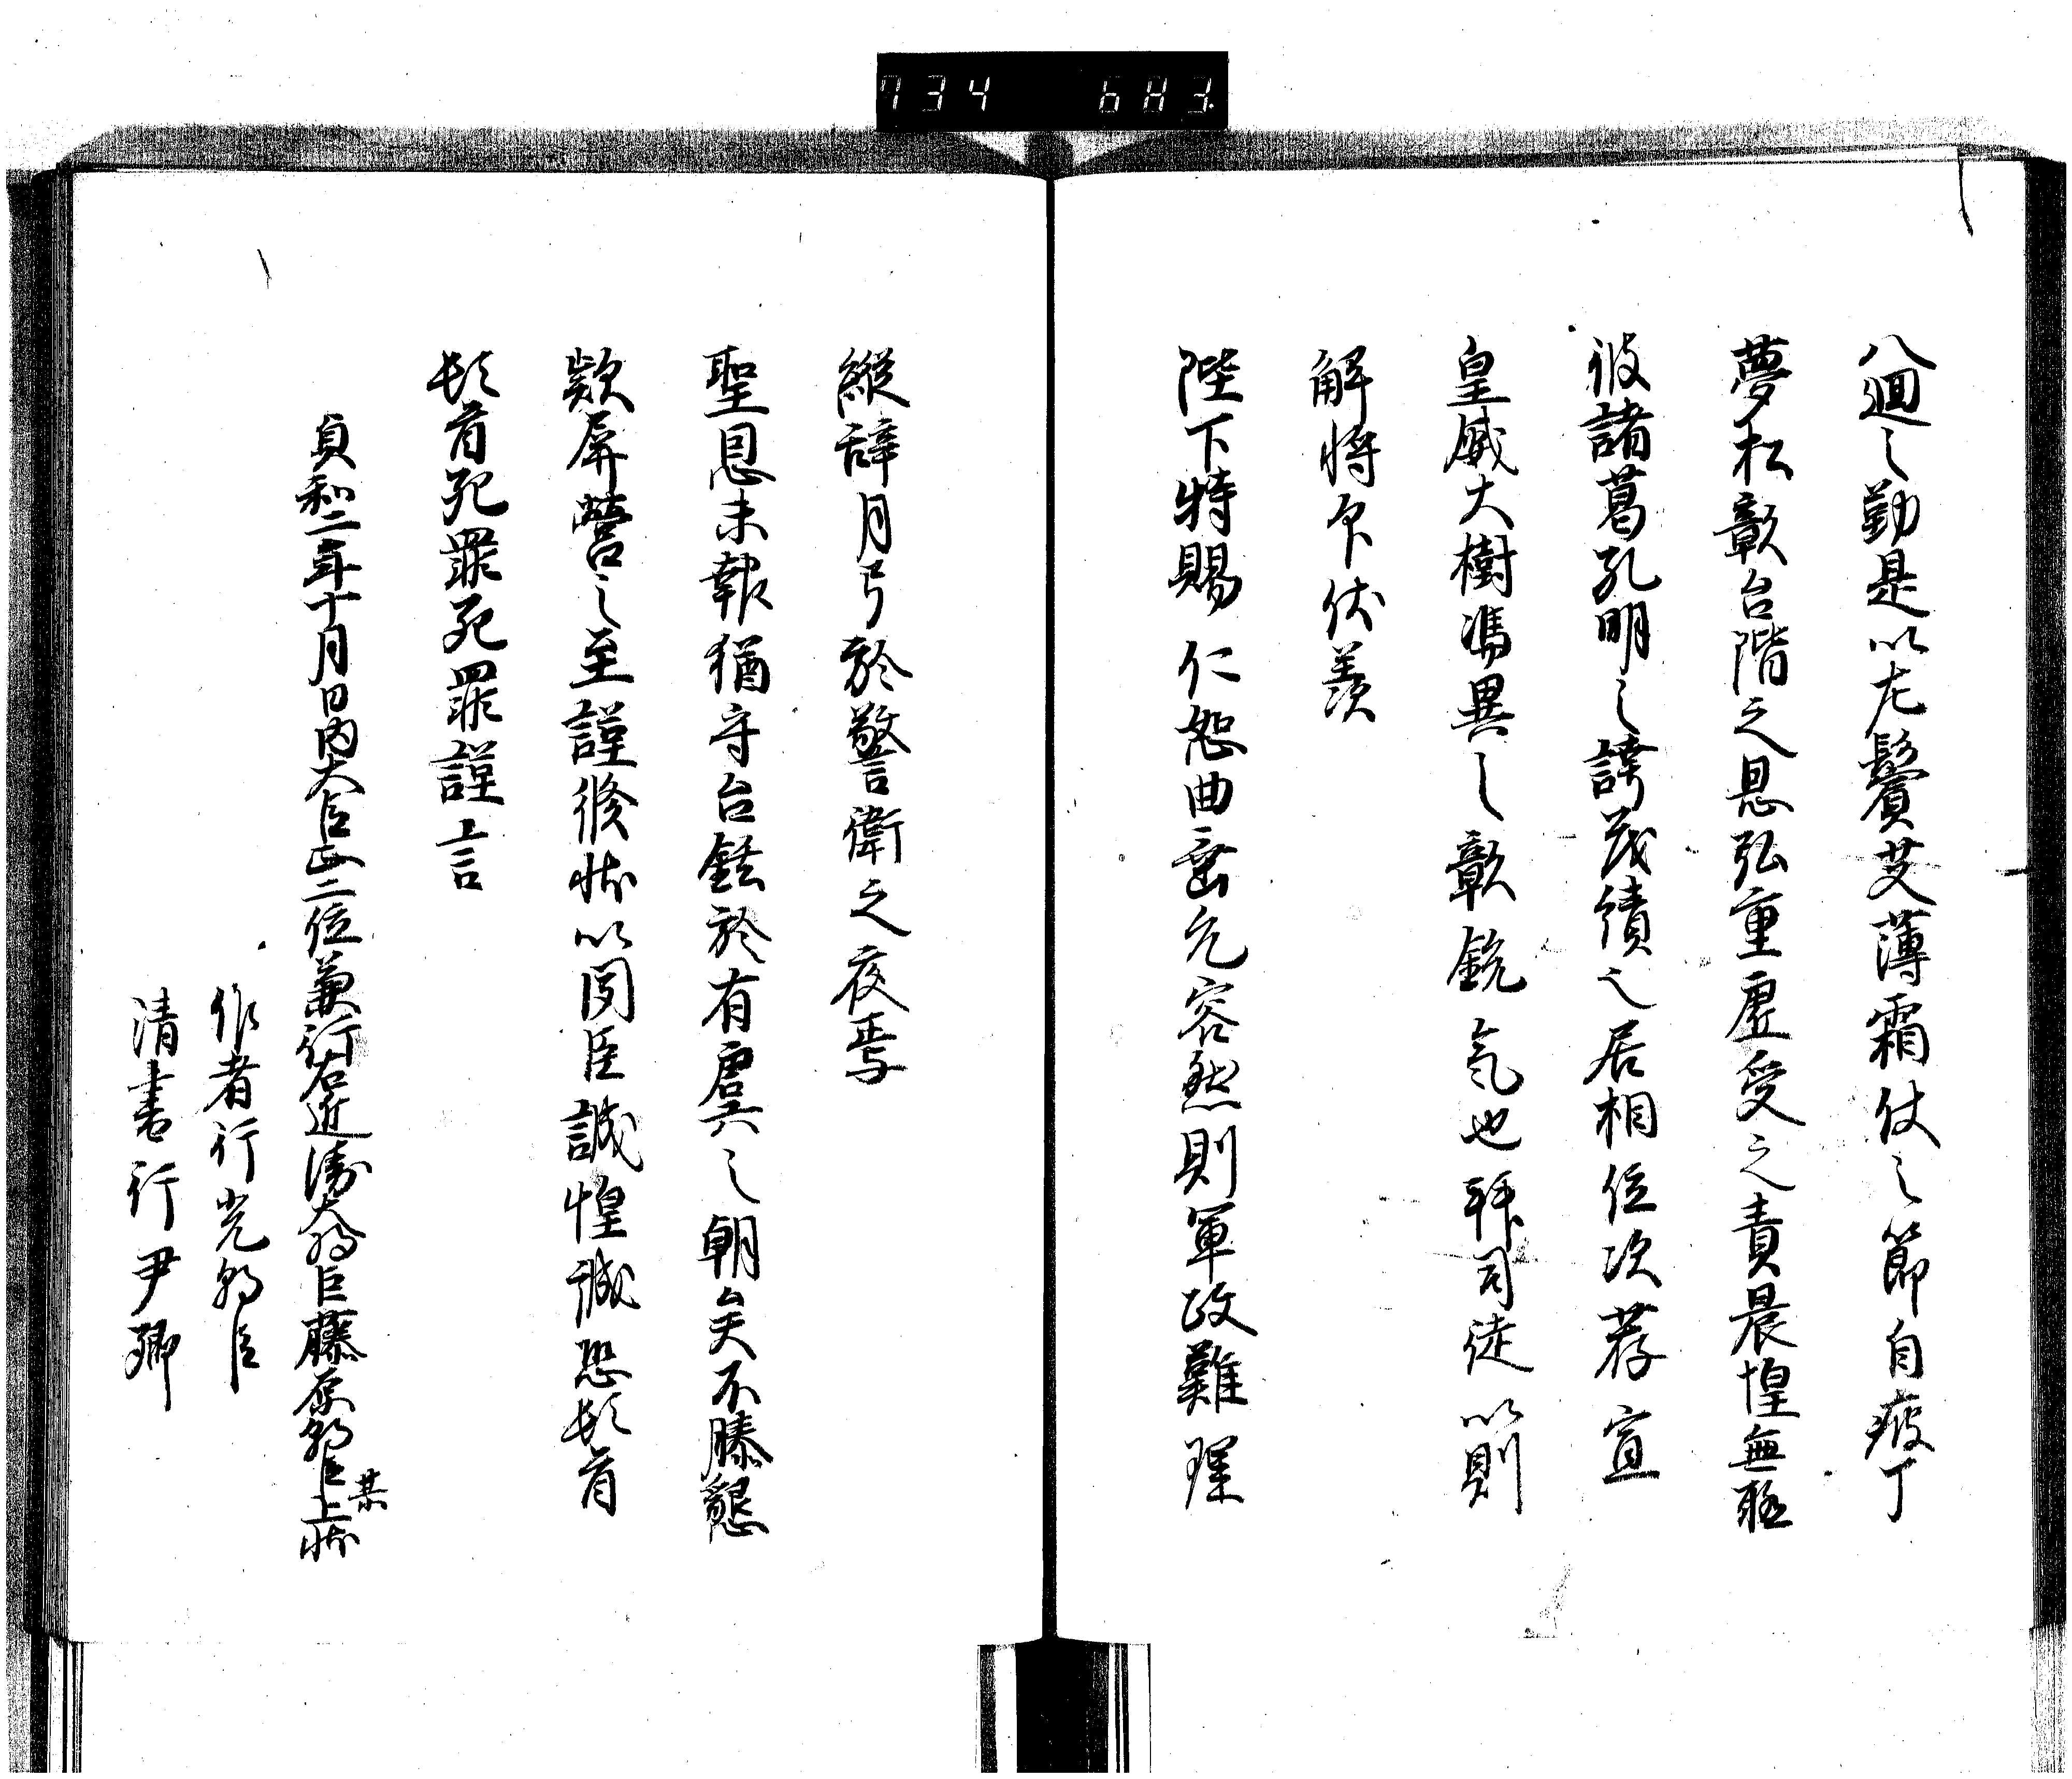 734 683
八廻之勤是以左鬢艾薄霜仗之節自疲丁
夢松彰台階之恩弘重虚受之責晨惶無極
彼諸葛孔明之誇茂績之居相位次荐宣
皇威大樹馮異之彰鋭気也拜司徒以則
解将印伏羨
陛下特賜仁恕曲垂允容然則軍政難理
縦辞月弓於警衛之夜焉
聖恩未報猶守台鉉於有虞之朝矣不勝懇
款屏營之至謹修状以聞臣誠惶誠恐頓首
頓首死罪死罪謹言
貞和二年十月日内大臣正二位兼行右近衛大将臣藤原朝臣某上状
作者行光朝臣
清書行尹卿